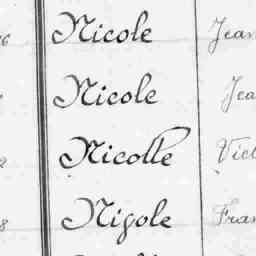 6 Nicole Jean
Nicole Jea
2 Nicolle Vict
8 Nigole Fran